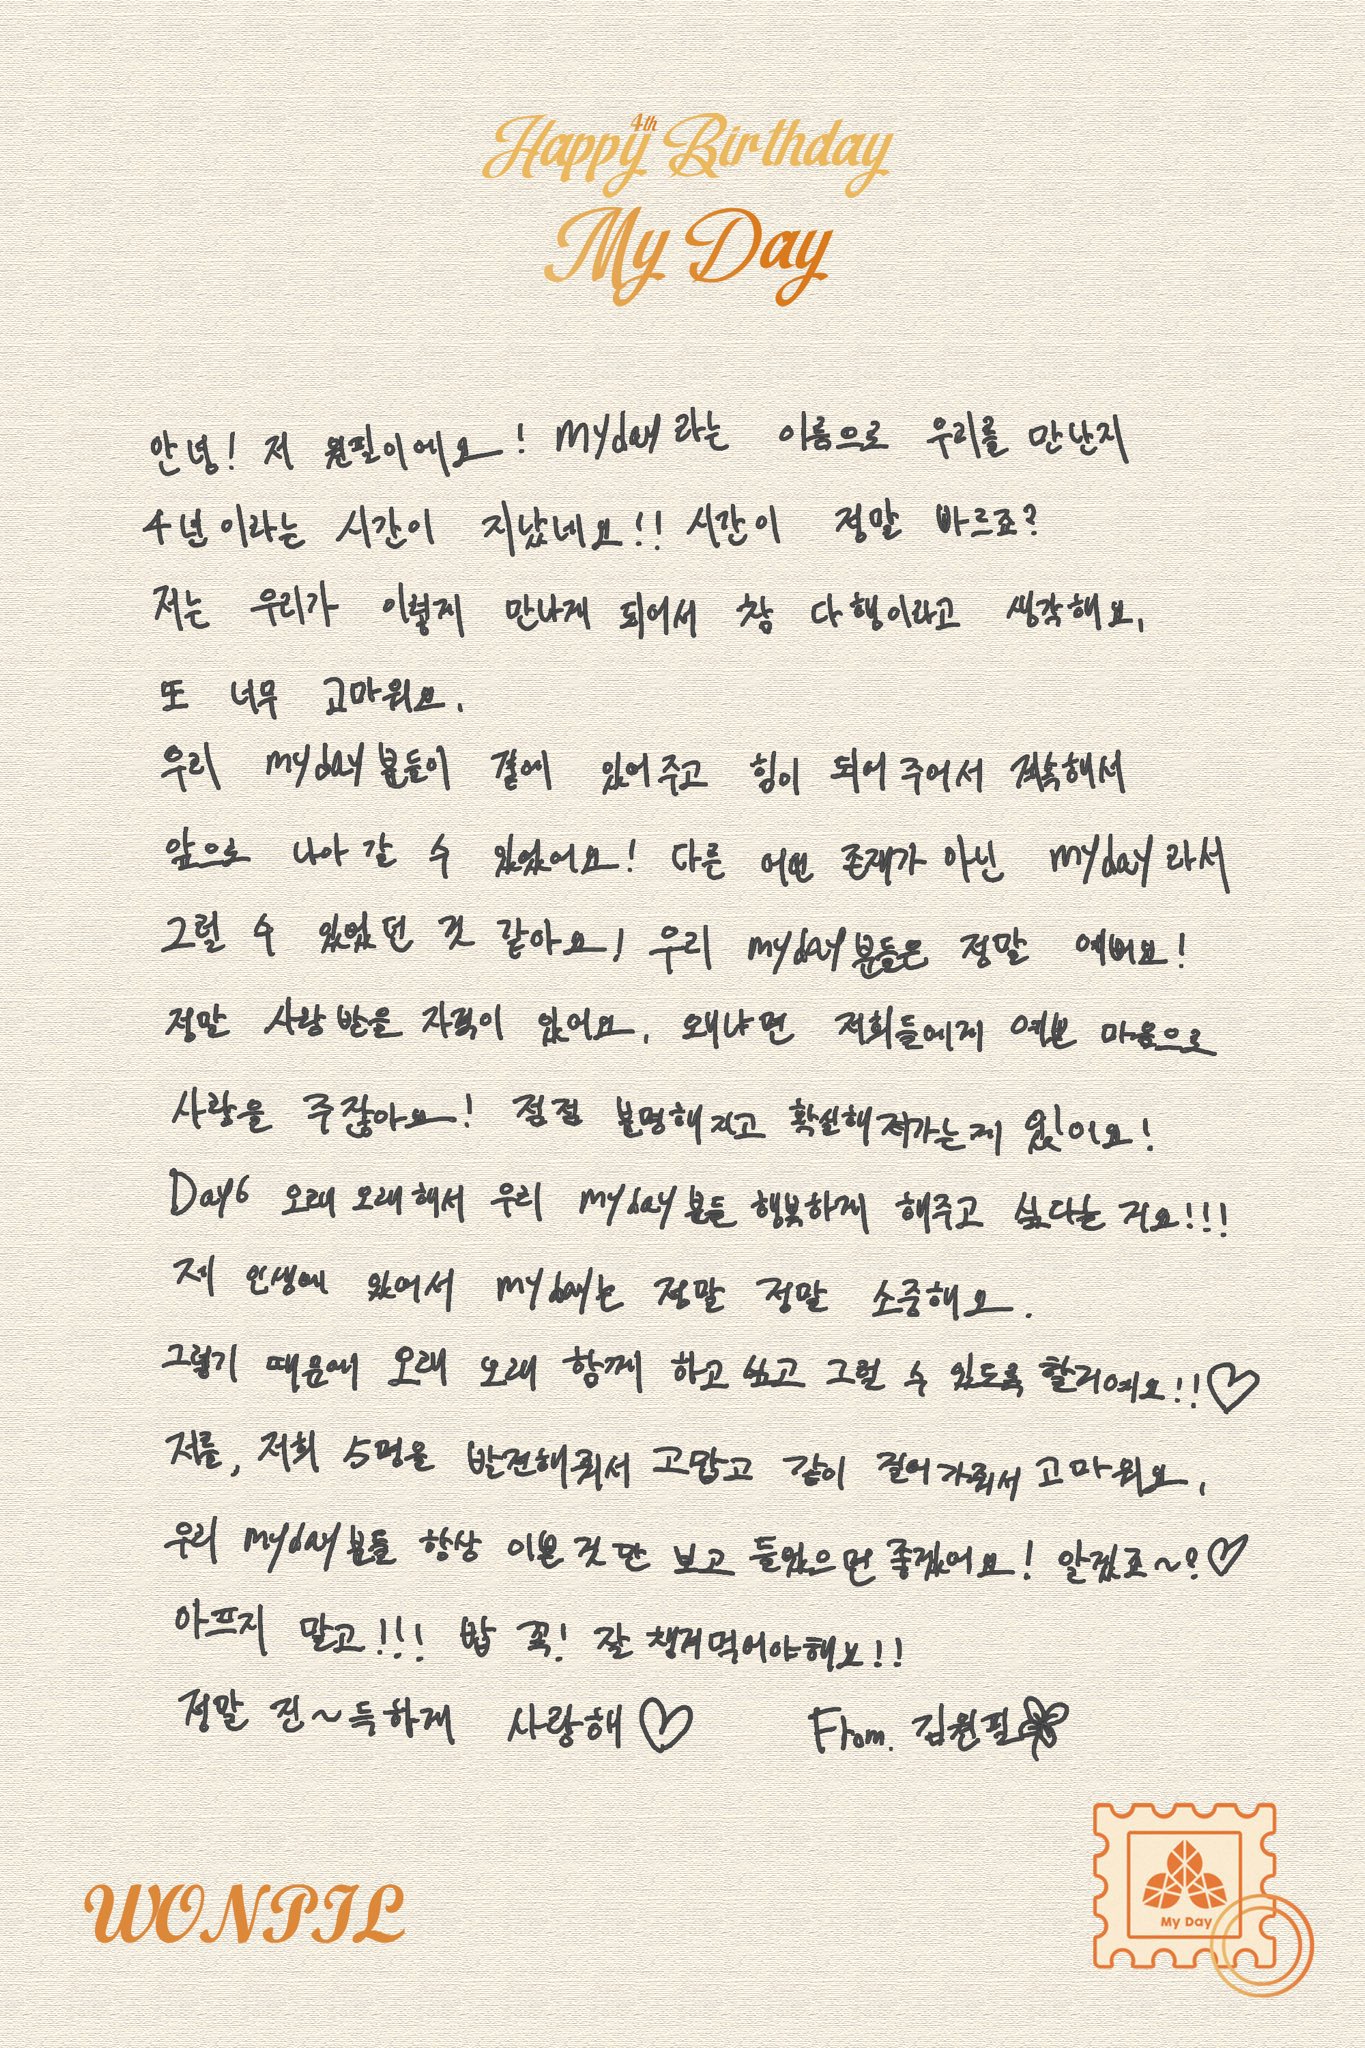 Happy 4th Birthday
My Day
안녕! 저 원필이에요! myday라는 이름으로 우리를 만난지
4년이라는 시간이 지났네요!! 시간이 정말 빠르죠?
저는 우리가 이렇게 만나게 되어서 참 다행이라고 생각해요.
또 너무 고마워요.
우리 myday분들이 곁에 있어주고 힘이 되어주어서 계속해서
앞으로 나아갈 수 있었어요! 다른 어떤 존재가 아닌 myday라서
그럴 수 있었던 것 같아요! 우리 myday분들은 정말 예뻐요!
정말 사랑받을 자격이 있어요. 왜냐면 저희들에게 예쁜 마음으로
사랑을 주잖아요! 점점 분명해지고 확실해져가는게 있어요!
Day6 오래오래해서 우리 myday분들 행복하게 해주고 싶다는 거요!!!
제 인생에 있어서 myday는 정말 정말 소중해요.
그렇기 때문에 오래 오래 함께 하고싶고 그럴 수 있도록 할거예요!!♡
저를, 저희 5명을 발견해줘서 고맙고 같이 걸어가줘서 고마워요.
우리 myday분들 항상 이쁜것만 보고 들었으면 좋겠어요! 알겠죠~?♡
아프지 말고!!! 밥 꼭! 잘 챙겨먹어야해요!!
정말 진~득하게 사랑해♡ From. 김원필
WONPIL
My Day